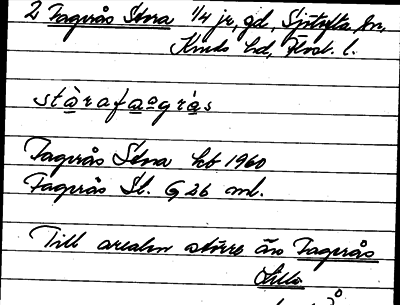 2 Fagerås Stora 1/4 jr, gd, Sjötofta sn,
Kinds hd, Älvsb. l.
stàrafaəgrås
Fagerås Stora kb 1960
Fagerås St. G 26 ml.
Till arealen större än Fagerås
Lilla